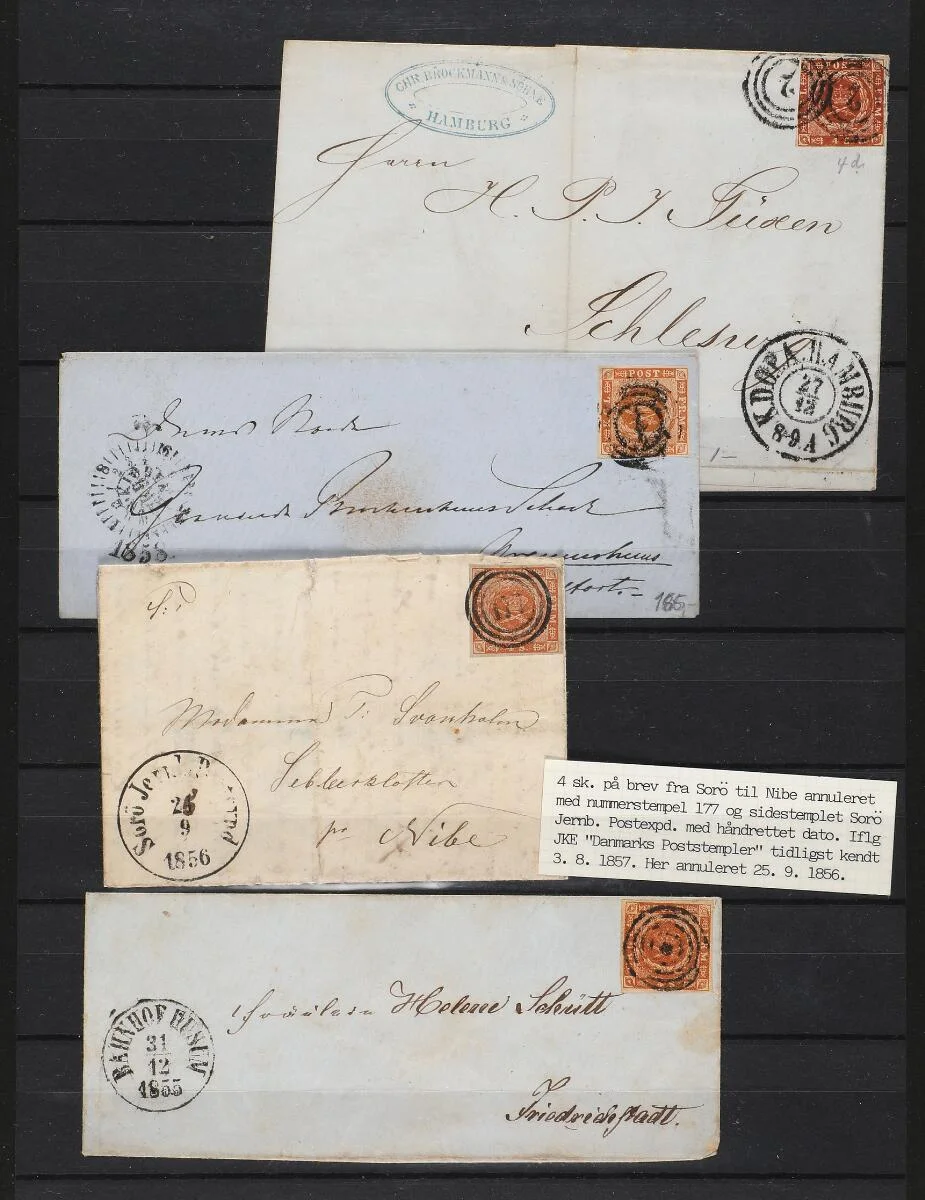 CHR. BROCKMANN & SÖHNE.
HAMBURG
POST
4 S.
7
4 d.
Herrn
H. P. J. Füxen
Schleswig
K.D.O.P.A. HAMBURG
27
12
8-9 V
POST
1
1858
1/-
185,-
POST
177
S: T
Madamme T: Svanholm
Sebberkloster
pr Nibe
Sorö Jernb. Postexpd
9
1856
4 sk. på brev fra Sorö til Nibe annuleret
med nummerstempel 177 og sidestemplet Sorö
Jernb. Postexpd. med håndrettet dato. Iflg
JKE "Danmarks Poststempler" tidligst kendt
3. 8. 1857. Her annuleret 25. 9. 1856.
BAHNHOF HUSUM
31
12
1855
Fräulein Helene Schütt
Friedrichstadt.